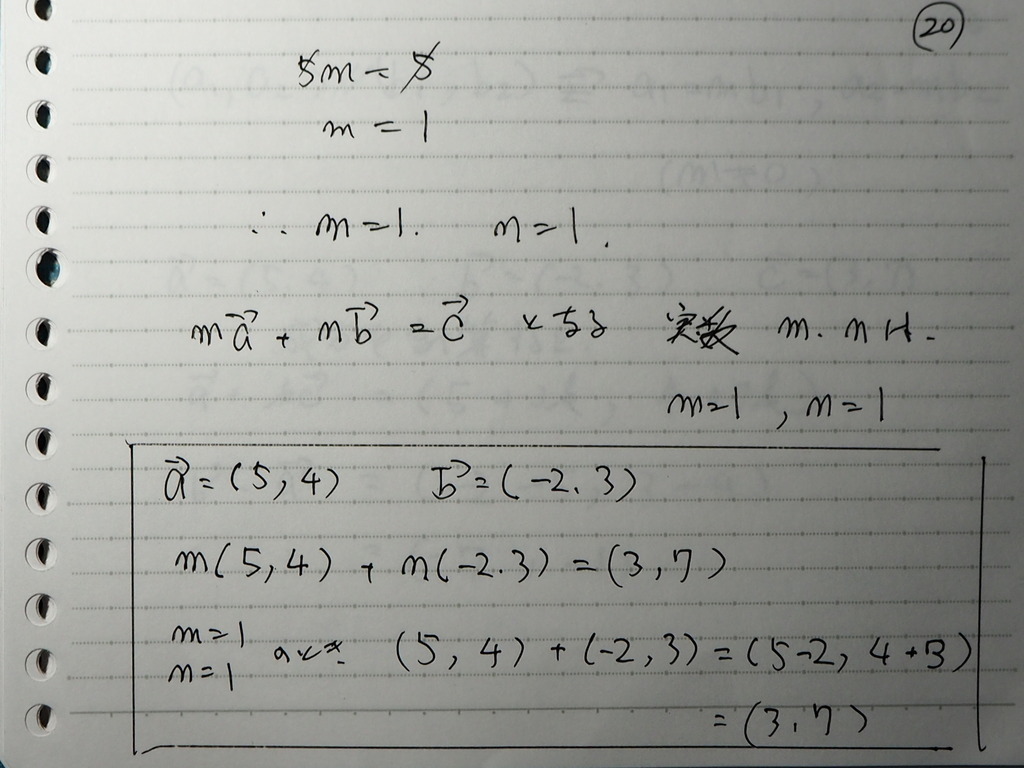 ⑳
5m = 5
m = 1
∴ m = 1. n = 1.
m\vec{a} + n\vec{b} = \vec{c} となる 実数 m. n は.
m=1 , n=1
\vec{a} = (5, 4) \vec{b} = (-2. 3)
m(5, 4) + n(-2. 3) = (3, 7)
m=1
n=1 のとき (5, 4) + (-2, 3) = (5-2, 4+3)
= (3. 7)